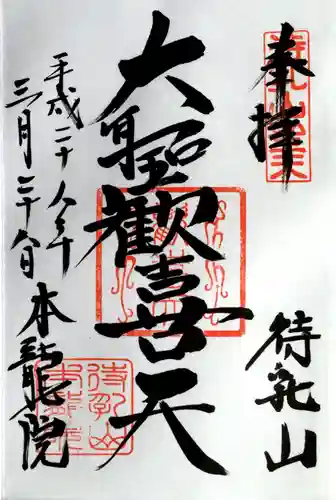 奉拝
待乳山
大聖歓喜天
平成二十八年
三月二十八日
本龍院